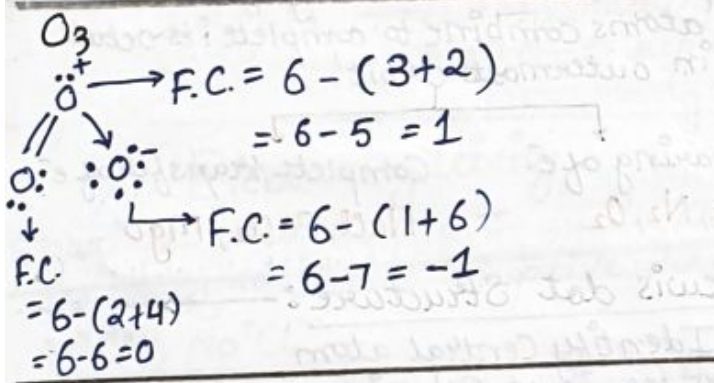 O₃
Ö⁺ → F.C. = 6 - (3+2)
= 6-5 = 1
Ö: :Ö:⁻
F.C. = 6 - (1+6)
= 6-7 = -1
F.C.
= 6-(2+4)
= 6-6=0